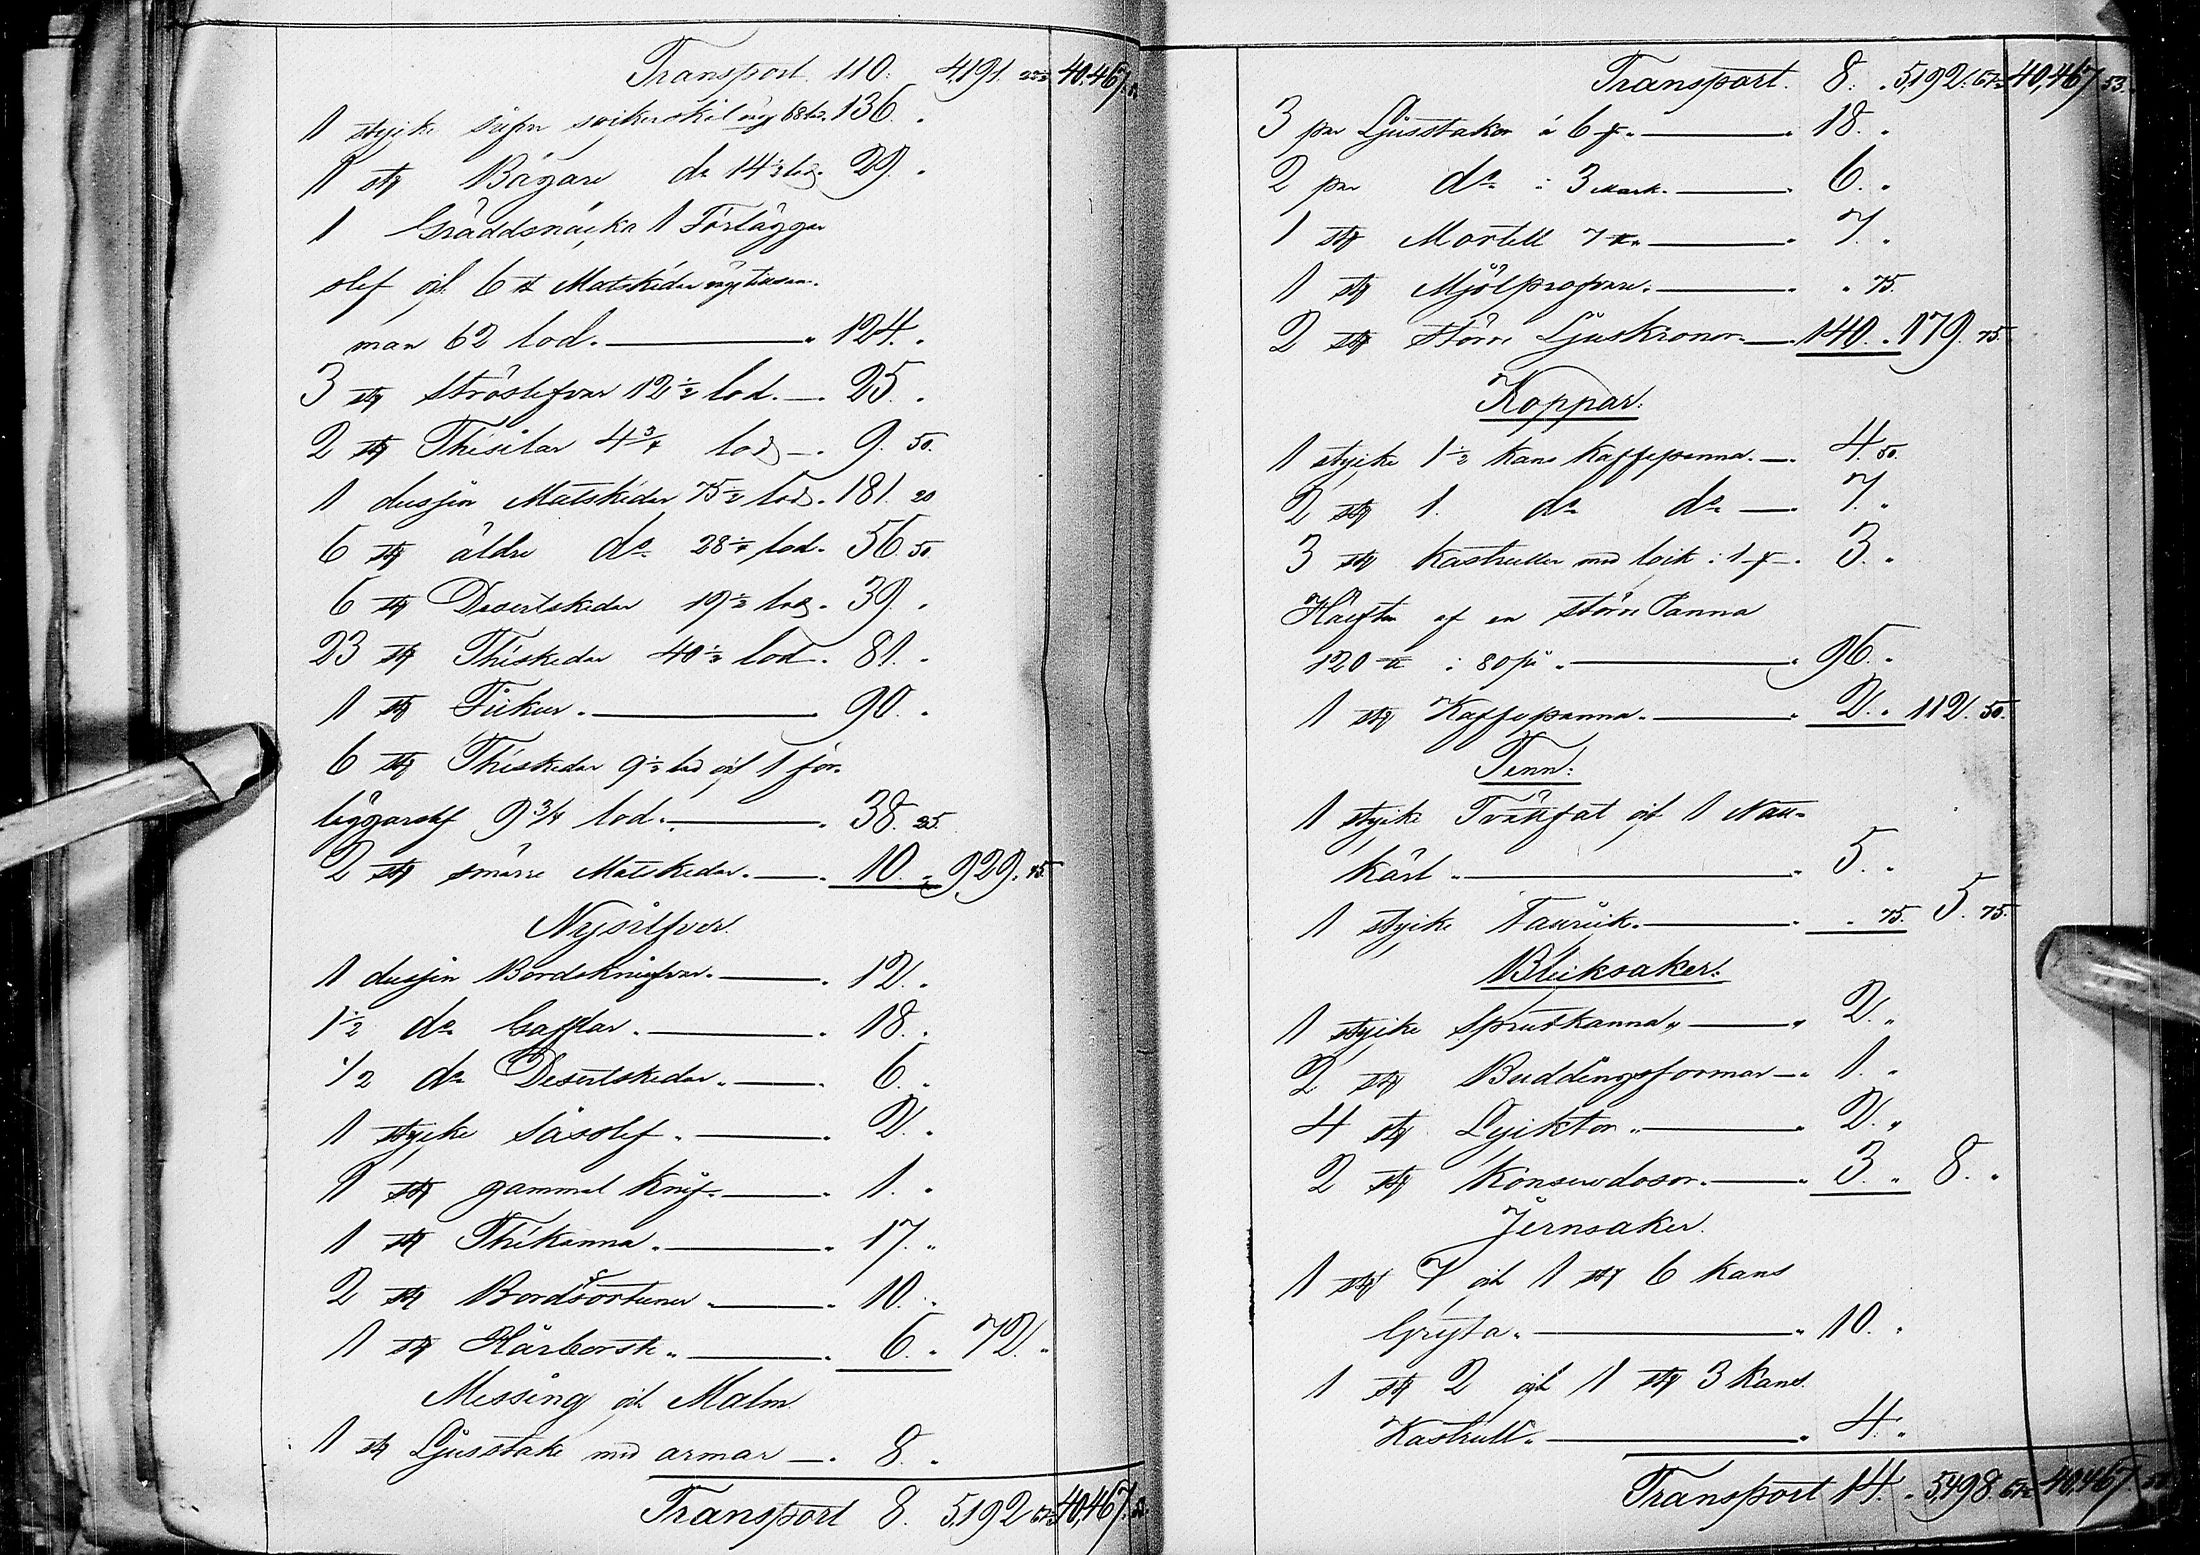 Transport 110. 4,191. 22½ 40,467. 53.
1 stycke sockerskål väg 68 lod. 136. "
1 st Bägare do 14½ lod. 29. "
1 Gräddsnäcka 1 Förläggar
slef och 6 st Matskedar väg tillsam-
man 62 lod. 124. "
3 st ströslefvar 12½ lod. 25. "
2 st Thésilar 4¾ lod 9. 50.
1 dussin Matskedar 75½ lod. 181. 20
6 st äldre do 28¼ lod. 56. 50.
6 st Desertskedar 19½ lod. 39. "
23 st Théskedar 40½ lod. 81. "
1 st Fickur. 90. "
6 st Théskedar 9½ lod och 1 för-
läggarslef 9 3/4 lod. 38. 25.
2 st smärre Matskedar. 10. " 929. 45.
Nysilfver.
1 dussin Bordsknifvar. 12. "
1½ do Gafflar. 18. "
1/2 do Desertskedar. 6. "
1 stycke Såsslef. 2. "
1 st gammal Knif. 1. "
1 st Thékanna. 17. "
2 st Bords 10. "
1 st Hårborste. 6. " 72. "
Messing och Malm
1 st Ljusstake med armar 8. "
Transport 8. 5,192 67½ 40,467. 53.
Transport. 8. " 5,192. 67½ 40,467. 53.
3 par Ljusstakar à 6 18. "
2 par do à 3 Mark. 6. "
1 st Mortell 7. "
1 st Mjölprofvare. " 75.
2 st större Ljuskronor. 140. " 179. 75.
Koppar:
1 stycke 1½ kans kaffepanna. 4. 50.
2 st 1. do do 7. "
3 st kastruller med lock à 1 3. "
Hälften af en större Panna
120 à 80 96. "
1 st Kaffepanna. 2. " 112. 50.
Tenn:
1 stycke Tvättfat och 1 Natt-
kärl. 5. "
1 stycke Tallrick. " 75. 5. 75.
Bleksaker.
1 stycke Sprutkanna. 2. "
2 st Buddingsformar 1. "
4 st Lycktor. 2. "
2 st Konservdosor. 3. " 8. "
Jernsaker.
1 st 7 och 1 st 6 kans
Gryta. 10. "
1 st 2 och 1 st 3 kans
Kastrull. 4. "
Transport 14. " 5,498. 67½ 40,467. 53